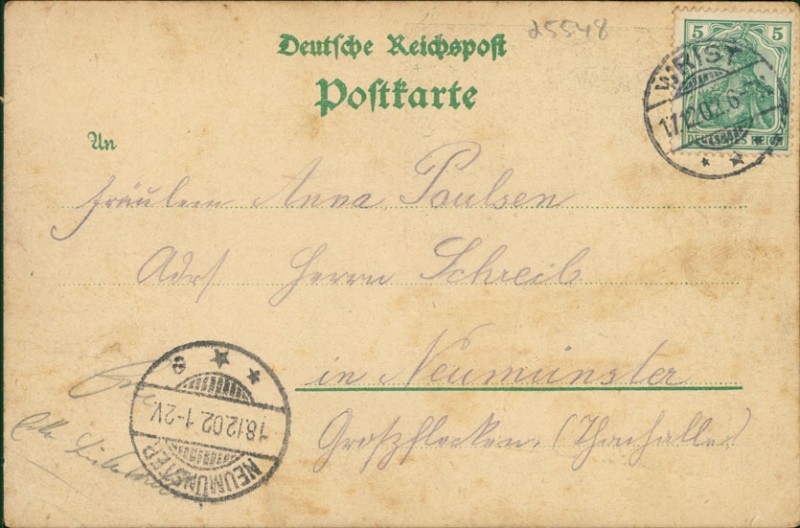 25548
Deutsche Reichspost
Postkarte
5 5
DEUTSCHES REICH
WRIST
17.12.02.6-
An
Fräulein Anna Paulsen
Adrs Herrn Schreib
in Neumünster
Großflecken. (Thonhalle)
18.12.02.1-2V.
NEUMÜNSTER